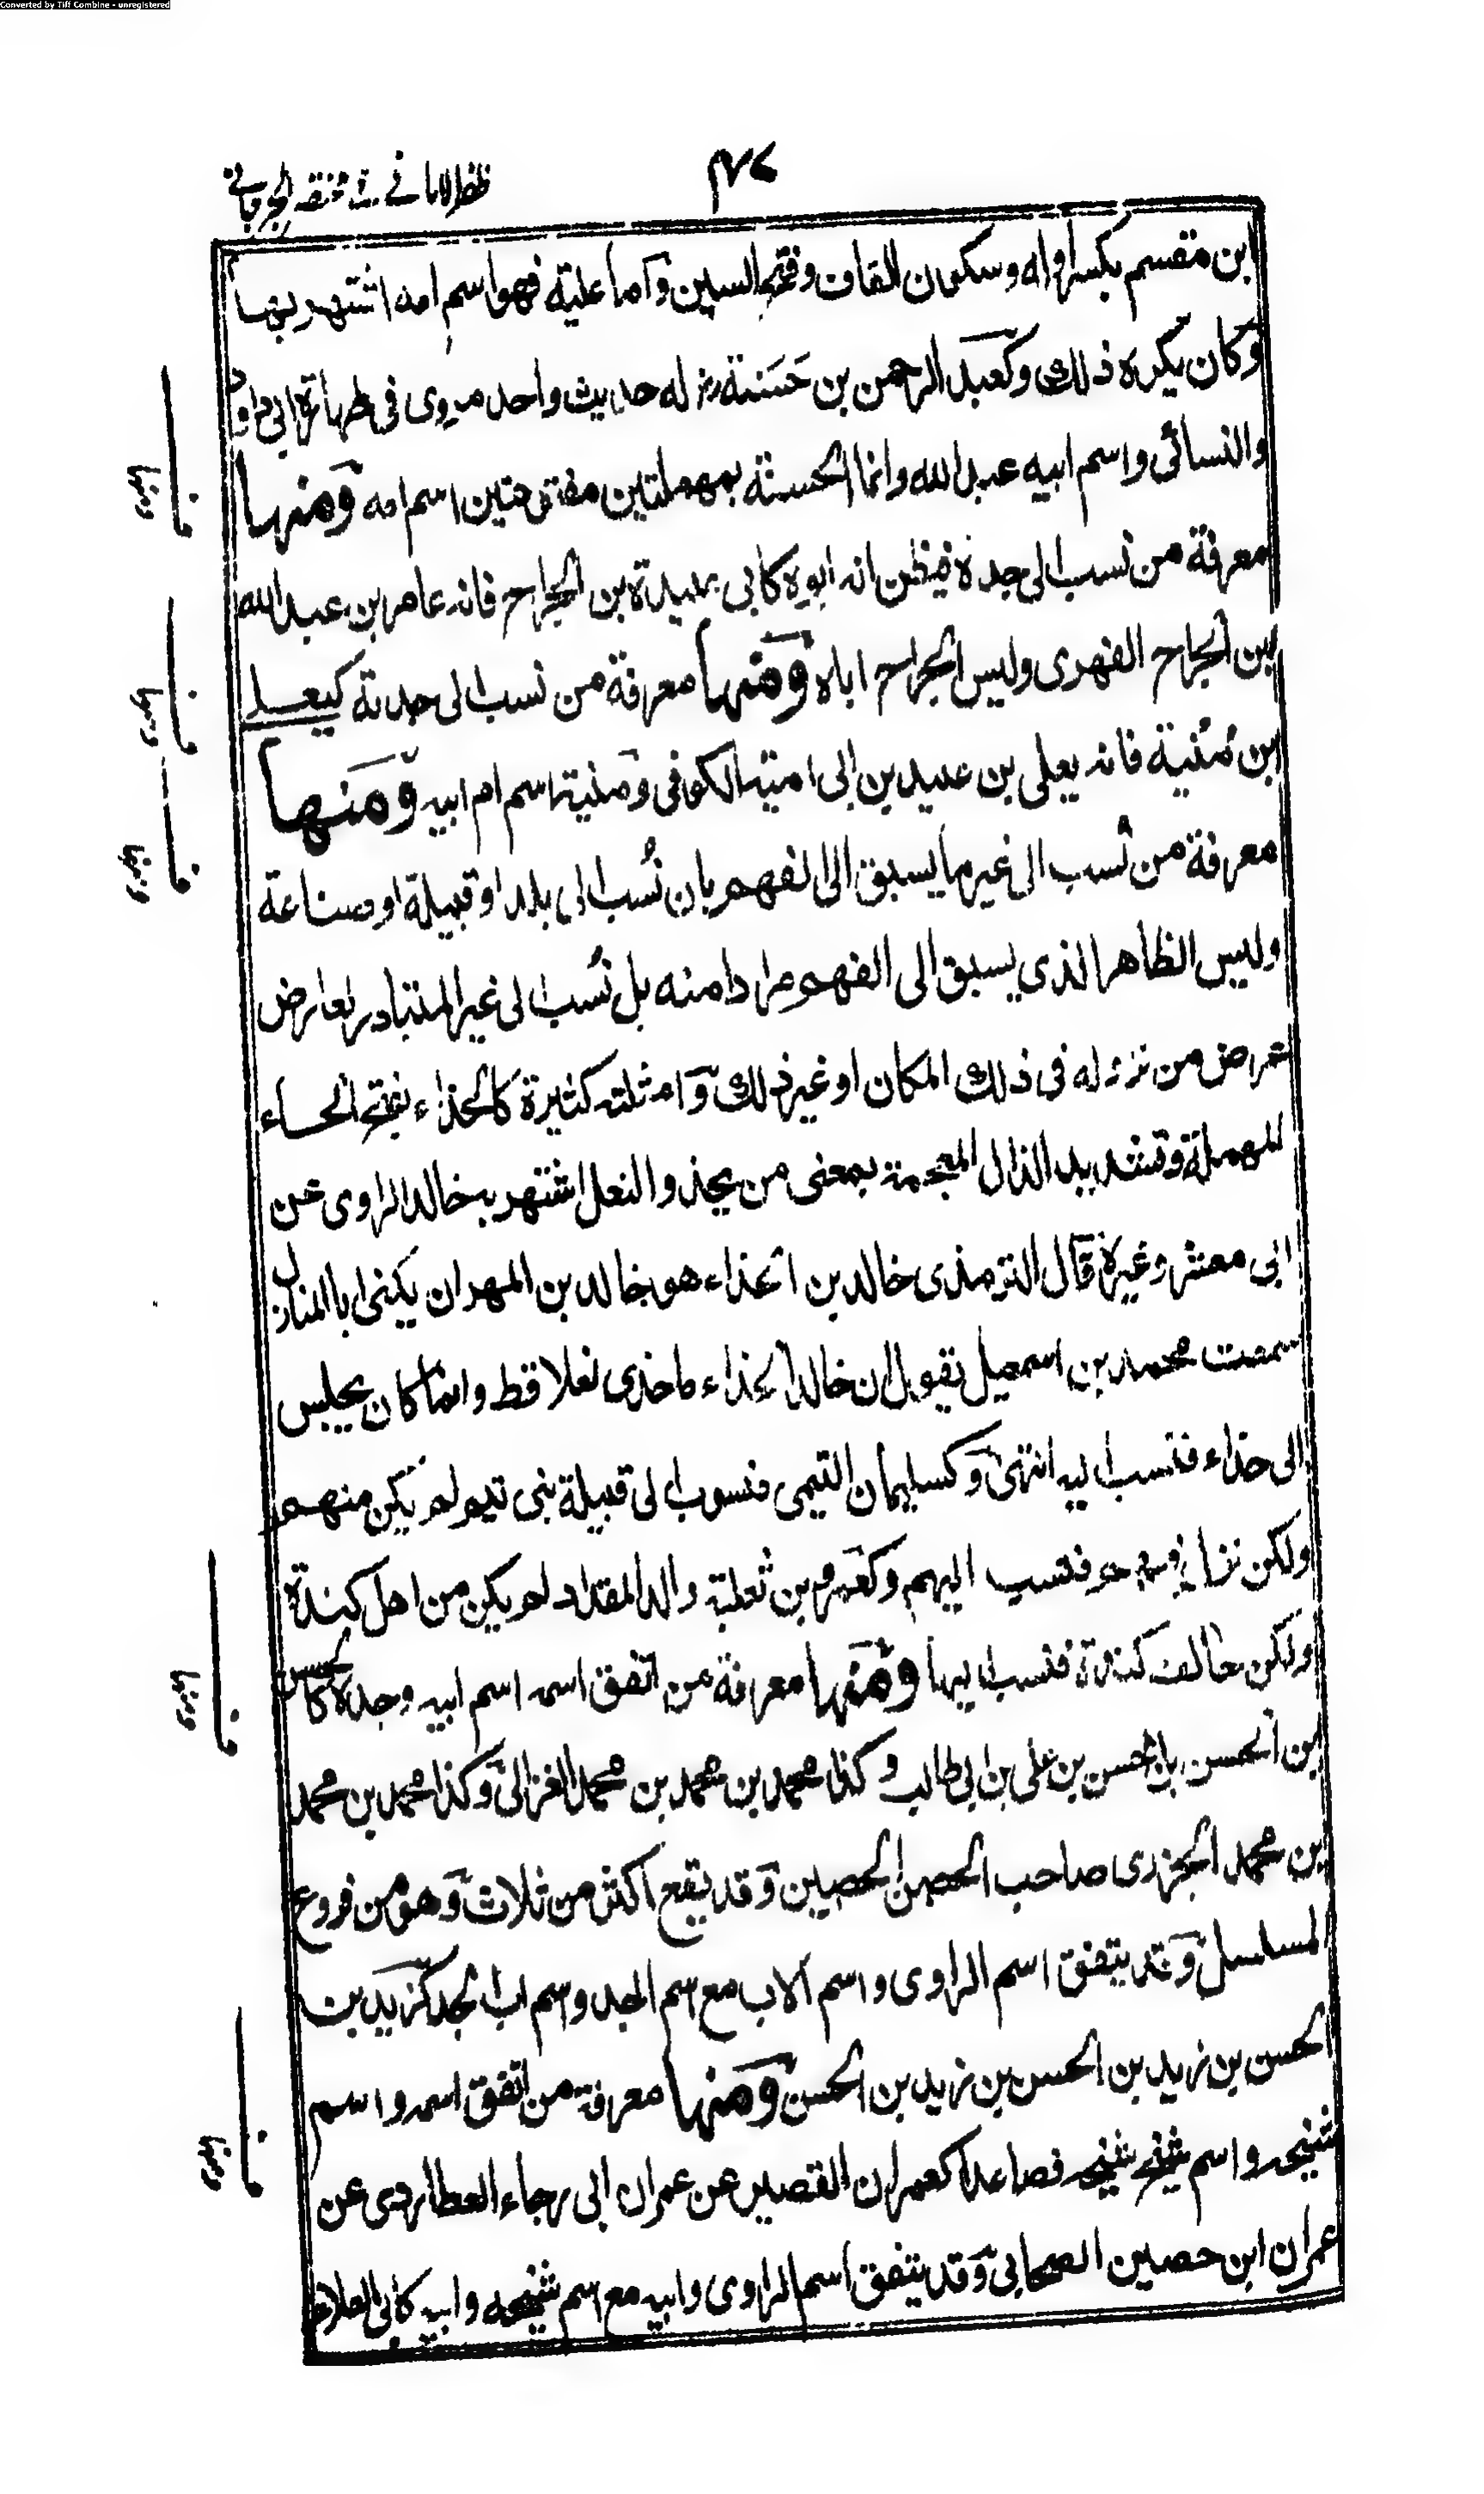 Converted by Tiff Combine - unregistered
ظفر الامانے فے مختصر الجرجانے
ابن مقسم بكسر اوله وسكون القاف وفتح السين وآما علية فهو اسم امه اشتهر بها
وكان يكره ذلك وكعبد الرحمن بن حَسَنة رضـ له حديث واحد مروى فى طهارة ابى داود
والنسائى واسم ابيه عبد الله وانما الحسنة بمهملتين مفتوحتين اسم امه وَمنها
معرفة من نسب الى جده فيظن انه ابوه كابى عبيدة بن الجراح فانه عامر بن عبد الله
بن الجراح الفهرى وليس الجراح اباه وَمنها معرفة من نسب الى جدته كيعلى
ابن مُنْية فانه يعلى بن عبيد بن ابى امية الكوفى ومنية اسم ام ابيه وَمنها
معرفة من نُسب الى غير ما يسبق الى الفهم بان نُسب الى بلد او قبيلة او صناعة
وليس الظاهر الذي يسبق الى الفهم مرادا منه بل نُسب الى غير المتبادر لعارض
عرض من نزوله فى ذلك المكان او غير ذلك وَامثلته كثيرة كالحذاء بفتح الحاء
المهملة وتشديد الذال المعجمة بمعنى من يحذو النعل اشتهر به خالد الراوى عن
ابى معشر وغيره قال الترمذى خالد بن الحذاء هو خالد بن المهران يكنى ابا المنازل
سمعت محمد بن اسمعيل يقول ان خالد الحذاء ما حذى نعلا قط وانما كان يجلس
الى حذاء فنسب اليه انتهى وكسليمان التيمى منسوب الى قبيلة بنى تيم ولم يكن منهم
ولكن نزل فيهم فنسب اليهم وكعمرو بن ثعلبة والد المقداد لم يكن من اهل كندة
ولكن حالف كندة فنسب اليها وَمنها معرفة من اتفق اسمه اسم ابيه وجده كالحسن
بن الحسن بن الحسن بن على بن ابى طالب وكذا محمد بن محمد بن محمد الغزالى وكذا محمد بن محمد
بن محمد الجزرى صاحب الحصن الحصين وَقد يقع اكثر من ثلاث وَهو من فروع
المسلسل وَقد يتفق اسم الراوى واسم الاب مع اسم الجد وسم اب الجد كزيد بن
الحسن بن زيد بن الحسن بن زيد بن الحسن وَمنها معرفة من اتفق اسمه واسم
شيخه واسم شيخ شيخه فصاعدا كعمران القصير عن عمران ابى رجاء العطاردى عن
عمران ابن حصين الصحابى وَقد يتفق اسم الراوى وابيه مع اسم شيخه وابيه كابى العلاء